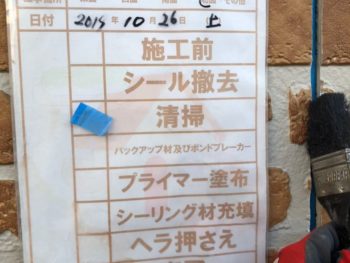 日付 2019年10月26日土
施工前
シール撤去
清掃
バックアップ材及びボンドブレーカー
プライマー塗布
シーリング材充填
ヘラ押さえ